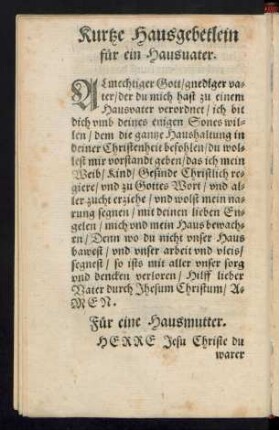 Kurtze Hausgebetlein
für ein Hausuater.
ALmechtiger Gott/gnediger va-
ter/der du mich hast zu einem
Hausvater verordnet/ich bit
dich vmb deines einigen Sones wil-
len/dem die gantze Haushaltung in
deiner Christenheit befohlen/du wol-
lest mir vorstandt geben/das ich mein
Weib/Kind/Gesünde Christlich re-
giere/vnd zu Gottes Wort/vnd al-
ler zucht erziehe/vnd wolst mein na-
rung segnen/mit deinen lieben En-
gelen/mich vnd mein Haus bewach-
en/Denn wo du nicht vnser Haus
bawest/vnd vnser arbeit vnd vleis
segnest/so ists mit aller vnser sorg
vnd dencken verloren/Hilff lieber
Vater durch Jhesum Christum/A-
MEN.
Für eine Hausmutter.
HERRE Jesu Christe du
warer